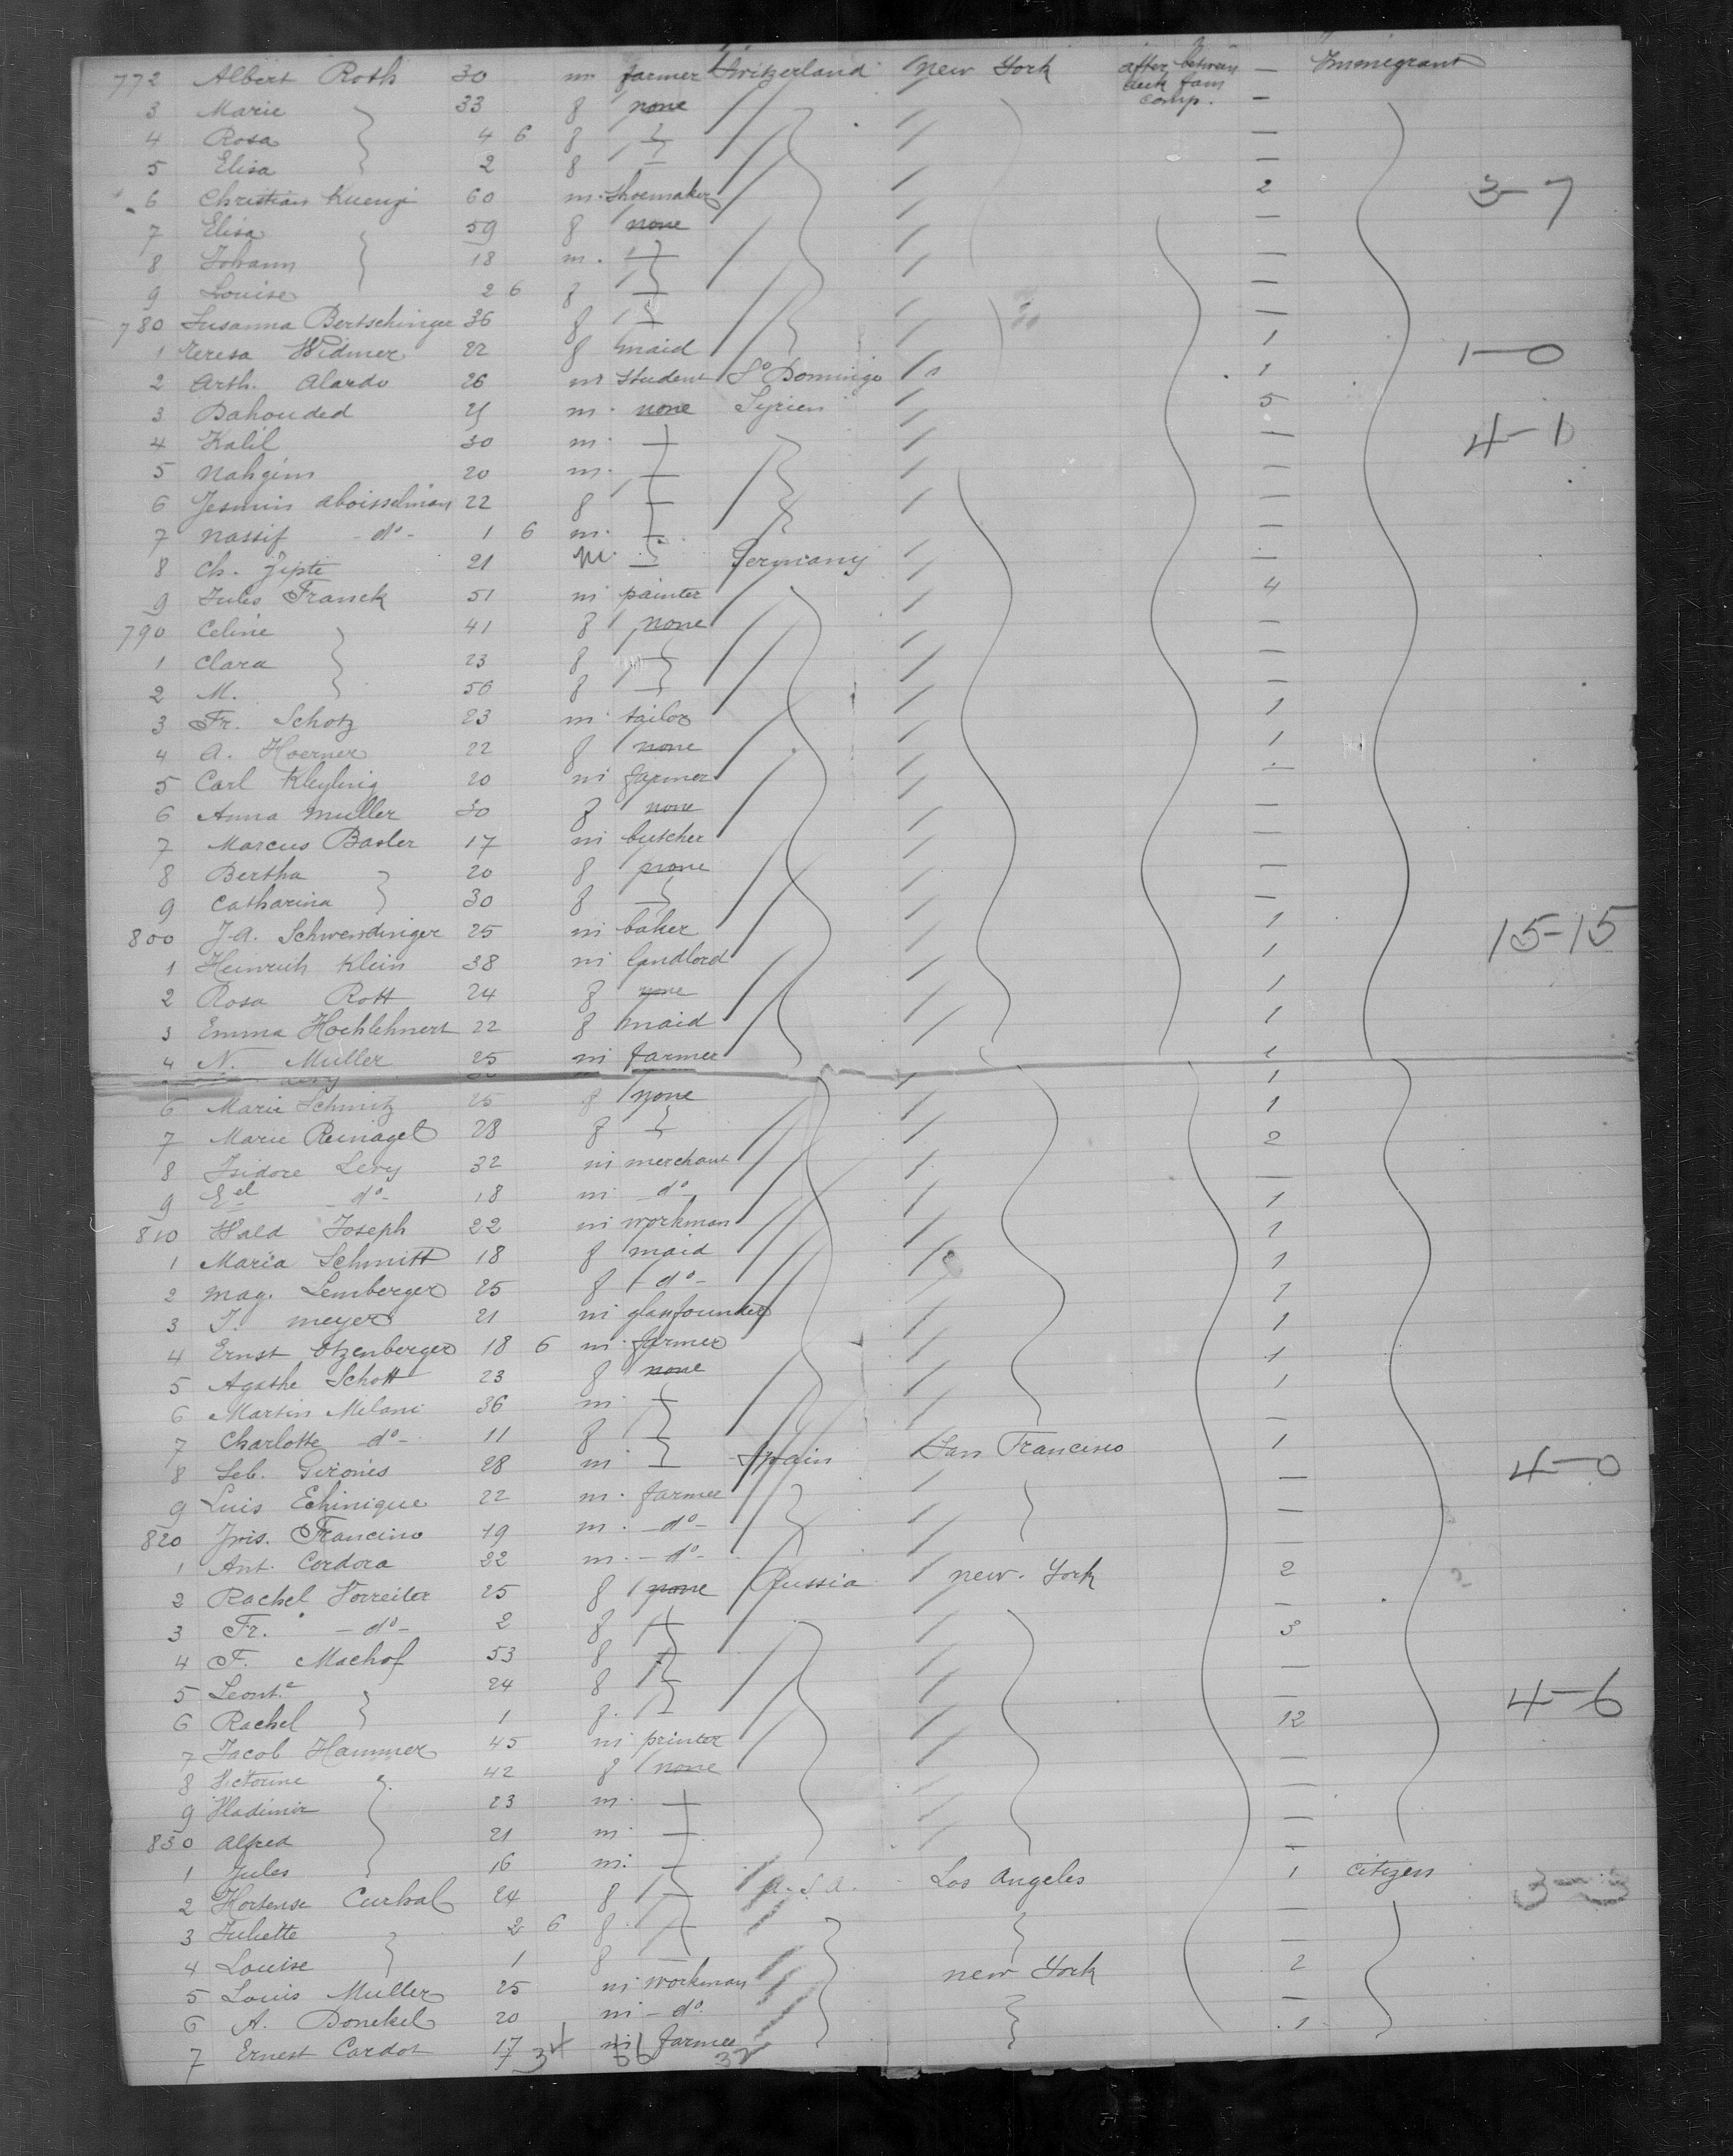 772 Albert Roth 30 m. farmer Switzerland New York after between deck fam comp. — Immigrant
3 Marie 33 f none —
4 Rosa 4 6 f —
5 Elisa 2 f —
6 Christian Kuenzi 60 m. shoemaker 2 3-7
7 Elisa 59 f none —
8 Johann 18 m. —
9 Louise 2 6 f —
780 Susanna Bertschinger 36 f —
1 Teresa Widmer 22 f maid 1 1-0
2 Arth. Alardo 26 m student So Domingo 1
3 Dahouded 25 m. none Syrien 5
4 Kalil 30 m. — 4-1
5 Nahgim 20 m. —
6 Jesmin Aboisseliman 22 f —
7 Nassif do 1 6 m. —
8 Ch. 21 m. Germany —
9 Jules Franck 51 m painter 4
790 Celine 41 f none —
1 Clara 23 f —
2 M. 56 f —
3 Fr. Schotz 23 m tailor 1
4 A. Hoerner 22 f none 1
5 Carl 20 m farmer —
6 Anna Muller 30 f none —
7 Marcus Basler 17 m butcher —
8 Bertha 20 f none —
9 Catharina 30 f —
800 J.A. Schwendinger 25 m baker 1 15-15
1 Heinrich Klein 38 m landlord 1
2 Rosa Rott 24 f none 1
3 Emma Hochlehnert 22 f maid 1
4 N. Muller 25 m farmer 1
6 Marie Schmitz 25 f none 1
7 Marie Reinagel 28 f 2
8 Isidore Levy 32 m merchant —
9 Eel do 18 m do 1
810 Wald Joseph 22 m workman 1
1 Maria Schmitt 18 f maid 1
2 Mag. Lemberger 25 f do 1
3 J. Meyer 21 m glassfounder 1
4 Ernst Otzenberger 18 6 m farmer 1
5 Agathe Schott 23 f none 1
6 Martin Milani 36 m —
7 Charlotte do 11 f 1
8 Seb. Girones 28 m Spain San Francisco — 4-0
9 Luis Echinique 22 m. farmer —
820 Francino 19 m. do —
1 Ant. Cordora 22 m. do
2 Rachel Vorreiter 25 f none Russia New York 2
3 Fr. do 2 f —
4 F. Machof 53 f 3
5 Leont.e 24 f —
6 Rachel 1 f. — 4-6
7 Jacob Hammer 45 m printer 12
8 Victorine 42 f none —
9 Wladimir 23 m. —
830 Alfred 21 m. —
1 Jules 16 m. —
2 Hortense Curbal 24 f U.S.A. Los Angeles 1 Citizen 3-3
3 Juliette 2 6 f. —
4 Louise 1 f —
5 Louis Muller 25 m workman New York 2
6 A. Donckel 20 m do —
7 Ernest Cardot 17 m farmer 1
34 66 32